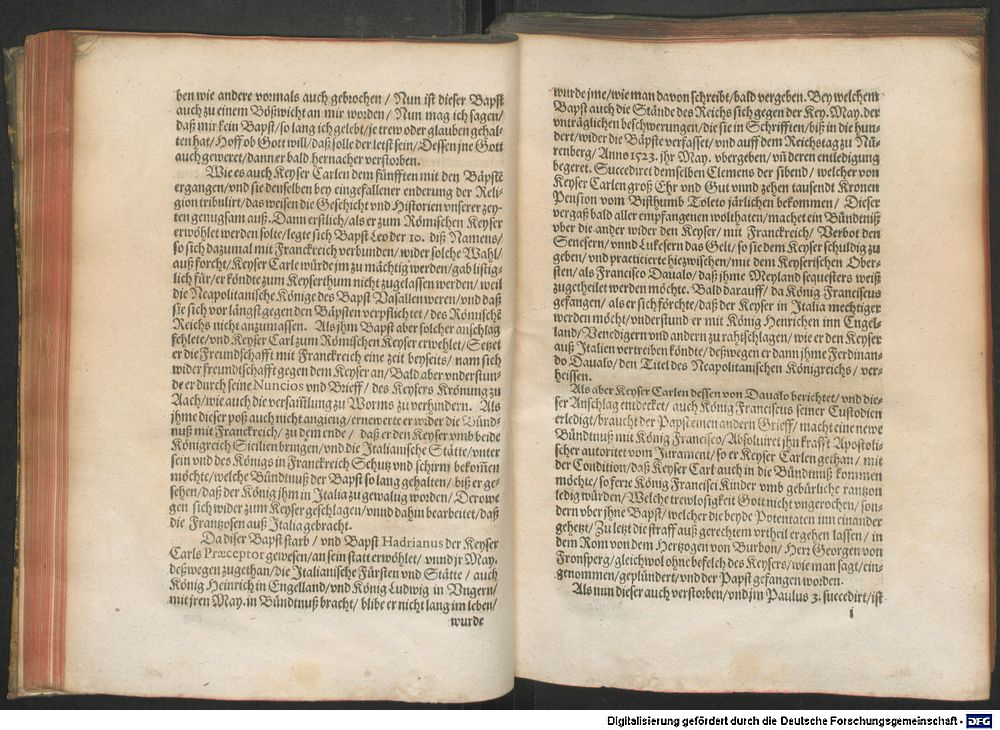 ben wie andere vormals auch gebrochen / Nun ist dieser Bapst
auch zu einem Bößwicht an mir worden / Nun mag ich sagen /
daß mir kein Bapst / so lang ich gelebt / je trew oder glauben gehal-
ten hat / Hoff ob Gott will / daß solle der letst sein / Dessen jne Gott
auch geweret / dann er bald hernacher verstorben.
Wie es auch Keyser Carlen dem fünfften mit den Bäpstē
ergangen / vnd sie denselben bey eingefallener enderung der Reli-
gion tribulirt / das weisen die Geschicht vnd Historien vnserer zey-
ten genugsam auß. Dann erstlich / als er zum Römischen Keyser
erwöhlet werden solte / legte sich Bapst Leo der 10. diß Namens /
so sich dazumal mit Franckreich verbunden / wider solche Wahl /
auß forcht / Keyser Carle würde jm zu mächtig werden / gab listig-
lich für / er köndte zum Keyserthum nicht zugelassen werden / weil
die Neapolitanische Könige des Bapst Vasallen weren / vnd daß
sie sich vor längst gegen den Bäpsten verpflichtet / des Römischē
Reichs nicht anzumassen. Als jhm Bapst aber solcher anschlag
fehlete / vnd Keyser Carl zum Römischen Keyser erwehlet / Setzet
er die Freundschafft mit Franckreich eine zeit beyseits / nam sich
wider freundtschafft gegen dem Keyser an / Bald aber vnderstun-
de er durch seine Nuncios vnd Brieff / des Keysers Krönung zu
Aach / wie auch die versam̄lung zu Worms zu verhindern. Als
jhme dieser poß auch nicht angieng / ernewerte er wider die Bünd-
nuß mit Franckreich / zu dem ende / daß er den Keyser vmb beide
Königreich Sicilien bringen / vnd die Italianische Stätte / vnter
sein vnd des Königs in Franckreich Schutz vnd schirm bekom̄en
möchte / welche Bündtnuß der Bapst so lang gehalten / biß er ge-
sehen / daß der König jhm in Italia zu gewaltig worden / Derowe
gen sich wider zum Keyser geschlagen / vnnd dahin bearbeitet / daß
die Frantzosen auß Italia gebracht.
Da diser Bapst starb / vnd Bapst Hadrianus der Keyser
Carls Præceptor gewesen / an sein statt erwöhlet / vnnd jr May.
deßwegen zugethan / die Italianische Fürsten vnd Stätte / auch
König Heinrich in Engelland / vnd König Ludwig in Vngern /
mit jren May. in Bündtnuß bracht / blibe er nicht lang im leben /
wurde
wurde jme / wie man davon schreibt / bald vergeben. Bey welchem
Bapst auch die Stände des Reichs sich gegen der Key. May. der
vnträglichen beschwerungen / die sie in Schrifften / biß in die hun-
dert / wider die Bäpste verfasset / vnd auff dem Reichstag zu Nü-
renberg / Anno 1523. jhr May. vbergeben / vn̄ deren entledigung
begeret. Succediret demselben Clemens der sibend / welcher von
Keyser Carlen groß Ehr vnd Gut vnnd zehen tausendt Kronen
Pension vom Bisthumb Toleto järlichen bekommen / Dieser
vergaß bald aller empfangenen wolthaten / machet ein Bündtniß
vber die ander wider den Keyser / mit Franckreich / Verbot den
Senesern / vnnd Lukesern das Gelt / so sie dem Keyser schuldig zu
geben / vnd practicierte hiezwischen / mit dem Keyserischen Ober-
sten / als Francisco Davalo / daß jhme Meyland sequesters weiß
zugetheilet werden möchte. Bald darauff / da König Franciscus
gefangen / als er sich förchte / daß der Keyser in Italia mechtiger
werden möcht / vnderstund er mit König Henrichen inn Engel-
land / Venedigern vnd andern zu rahtschlagen / wie er den Keyser
auß Italien vertreiben köndte / deßwegen er dann jhme Ferdinan-
do Davalo / den Titel des Neapolitanischen Königreichs / ver-
heissen.
Als aber Keyser Carlen dessen von Davalo berichtet / vnd die-
ser Anschlag entdecket / auch König Franciscus seiner Custodien
erledigt / braucht der Papst einen andern Grieff / macht eine newe
Bündtnuß mit König Francisco / Absolviret jhn krafft Apostoli-
scher autoritet vom Jurament / so er Keyser Carlen gethan / mit
der Condition / daß Keyser Carl auch in die Bündtnuß kommen
möchte / so ferre König Francisci Kinder vmb gebürliche rantzon
ledig würden / Welche trewlosigkeit Gott nicht vngerochen / son-
dern vber jhne Bapst / welcher die beyde Potentaten inn einander
gehetzt / Zu letzt die straff auß gerechtem vrtheil ergehen lassen / in
dem Rom von dem Hertzogen von Burbon / Herr Georgen von
Fronsperg / gleichwol ohne befelch des Keysers / wie man sagt / ein-
genommen / geplündert / vnd der Papst gefangen worden.
Als nun dieser auch verstorben / vnd jm Paulus 3. succedirt / ist
i
Digitalisierung gefördert durch die Deutsche Forschungsgemeinschaft - DFG